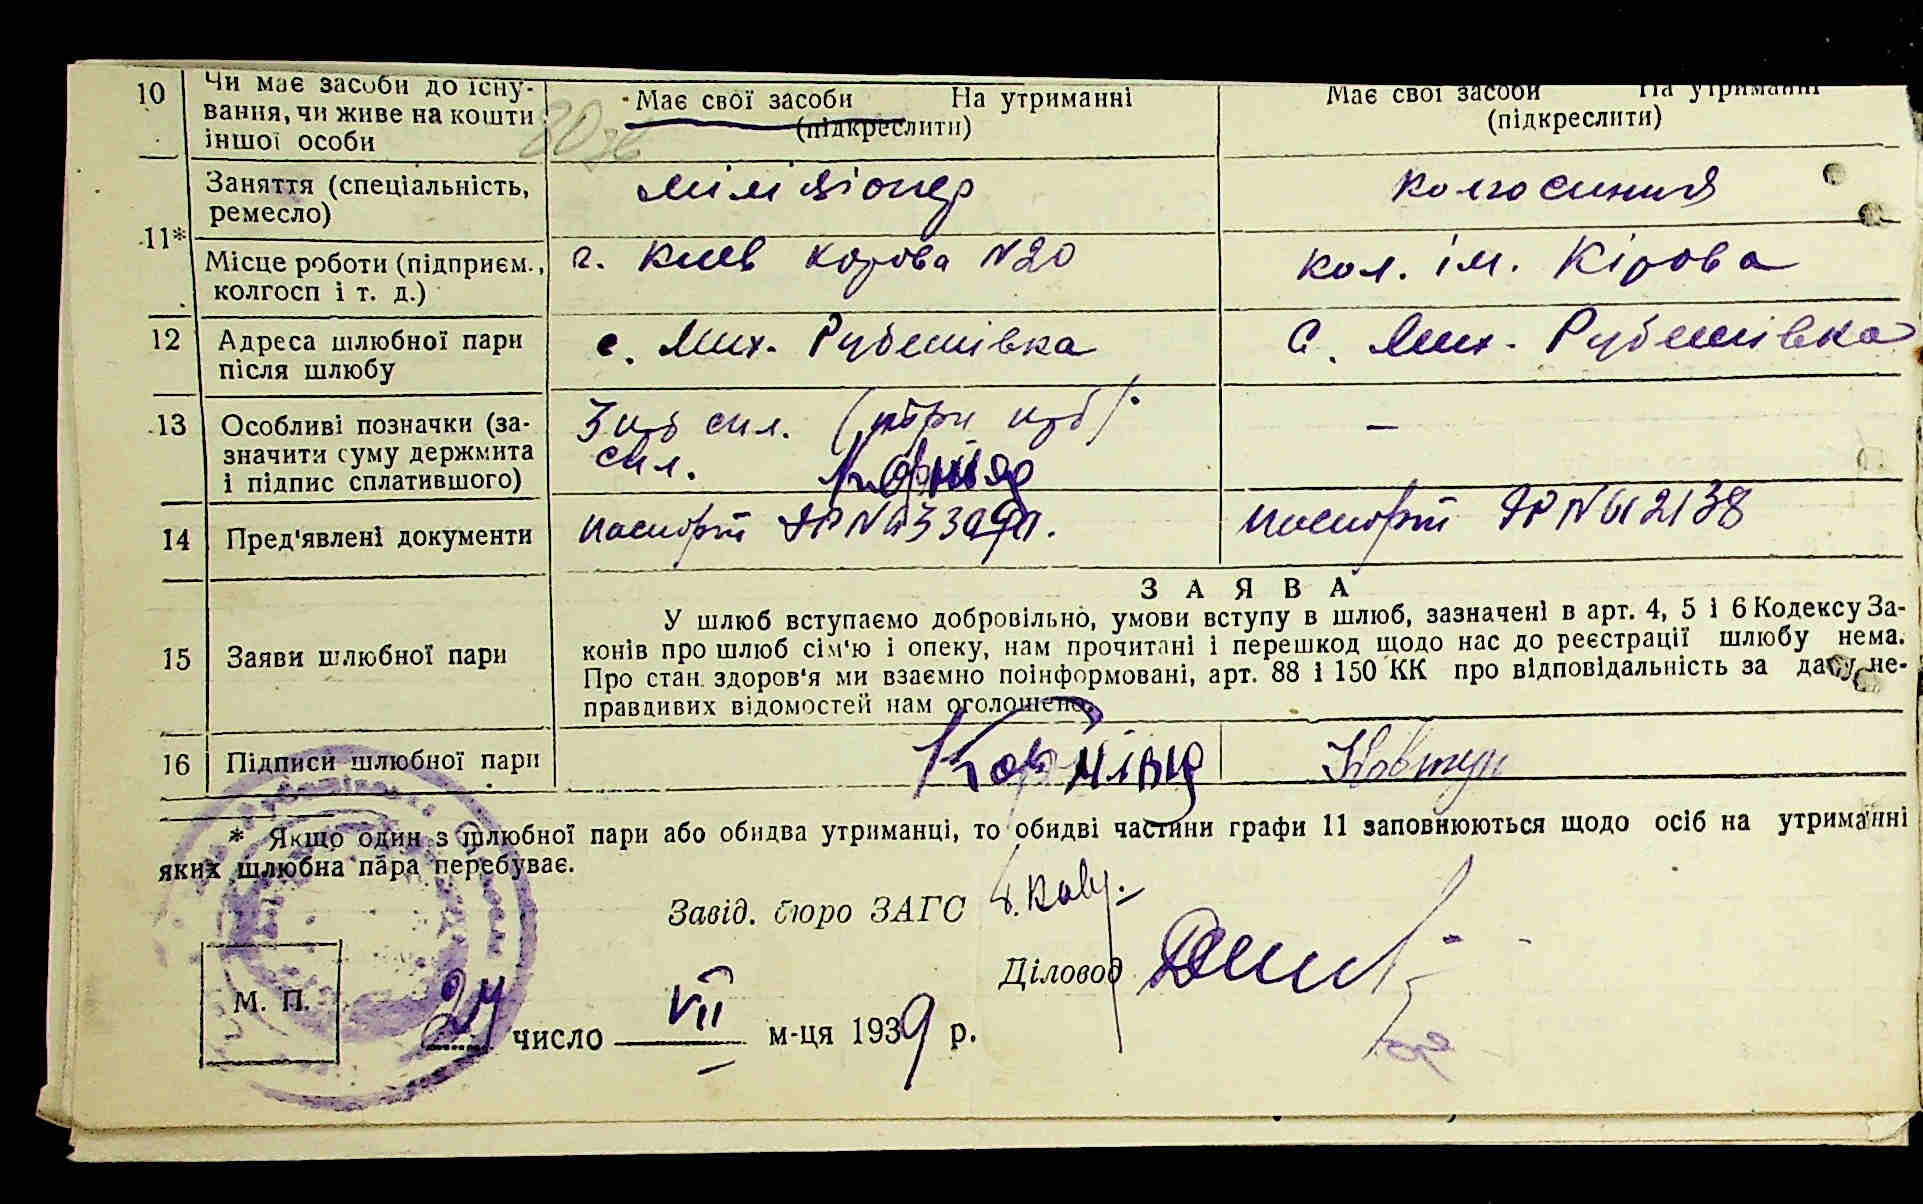 10 Чи має засоби до існу-
вання, чи живе на кошти
іншої особи
Має свої засоби На утриманні
(підкреслити)
Має свої засоби На утриманні
(підкреслити)
11* Заняття (спеціальність,
ремесло)
міліціонер
колгоспниця
Місце роботи (підприєм.,
колгосп і т. д.)
г. Киев Кирова N 20
кол. ім. Кірова
12 Адреса шлюбної пари
після шлюбу
с. Мих. Рубежівка
С. Мих. Рубежівка
13 Особливі позначки (за-
значити суму держмита
і підпис сплатившого)
3 крб спл. (три крб).
спл.
—
14 Пред'явлені документи
паспорт
паспорт N 612138
15 Заяви шлюбної пари
ЗАЯВА
У шлюб вступаємо добровільно, умови вступу в шлюб, зазначені в арт. 4, 5 і 6 Кодексу За-
конів про шлюб сім'ю і опеку, нам прочитані і перешкод щодо нас до реєстрації шлюбу нема.
Про стан здоров'я ми взаємно поінформовані, арт. 88 і 150 КК про відповідальність за дачу не-
правдивих відомостей нам оголошено.
16 Підписи шлюбної пари
Корнієць
Ковтун
* Якщо один з шлюбної пари або обидва утриманці, то обидві частини графи 11 заповнюються щодо осіб на утриманні
яких шлюбна пара перебуває.
Завід. бюро ЗАГС
Діловод
М. П.
24 число VII м-ця 1939 р.